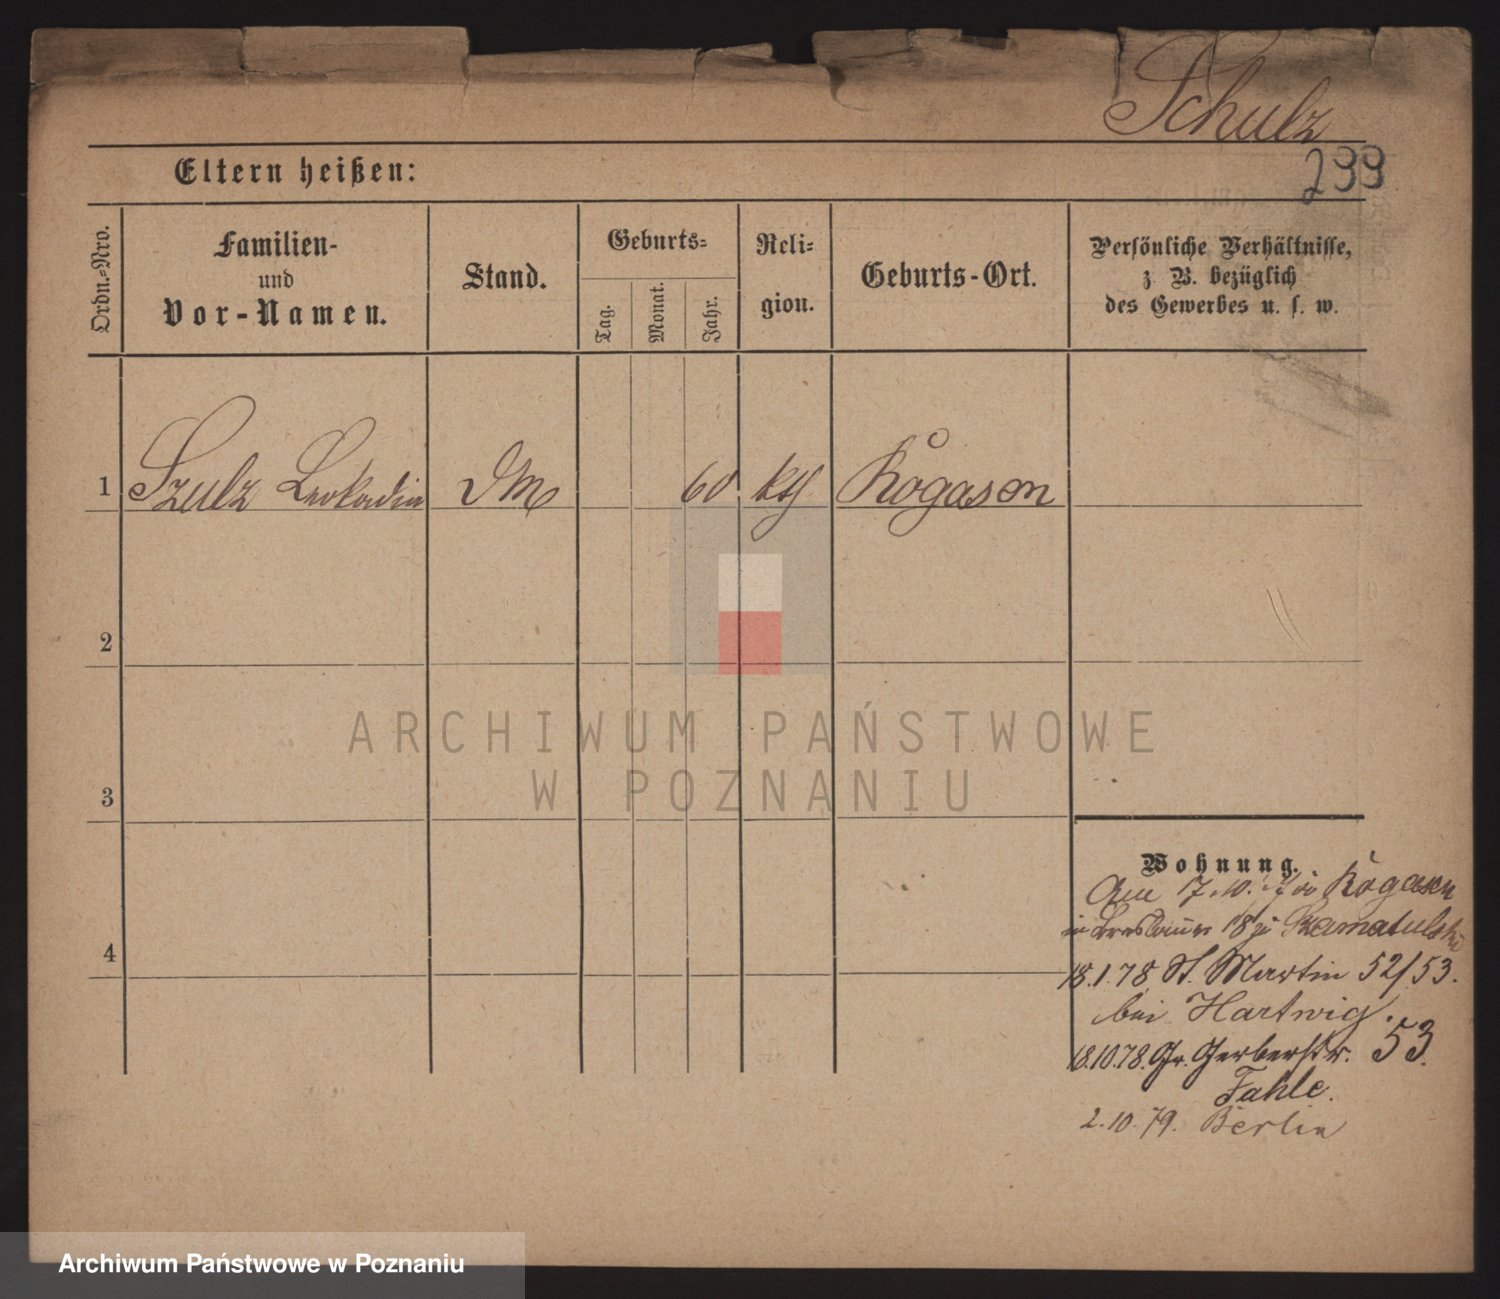 Schulz
299
Eltern heißen:
Ordn.-Nro.
Familien-
und
Vor-Namen.
Stand.
Geburts-
Tag.
Monat.
Jahr.
Reli-
gion.
Geburts-Ort.
Persönliche Verhältnisse,
z. B. bezüglich
des Gewerbes u. s. w.
1 Szulz Leokadia DM 60 kth Rogasen
2
3
4
ARCHIWUM PAŃSTWOWE
W POZNANIU
Wohnung.
17.10. Rogasen
18
18.1.78 St. Martin 52/53.
bei Hartwig.
18.10.78. Gr. Gerberstr. 53.
Fahle.
2.10.79. Berlin
Archiwum Państwowe w Poznaniu